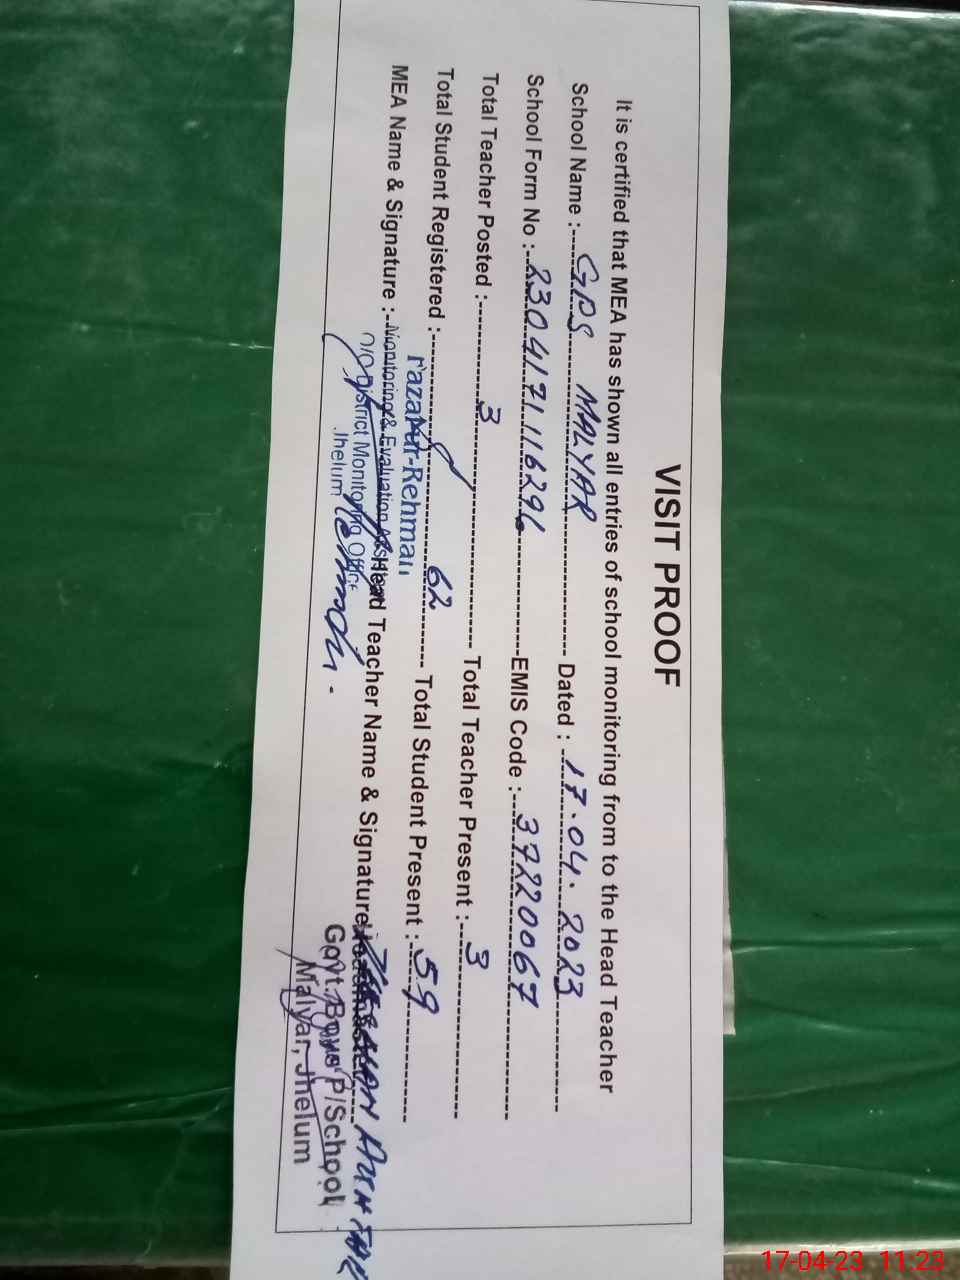 VISIT PROOF
It is certified that MEA has shown all entries of school monitoring from to the Head Teacher
School Name :- GPS MALYAR Dated : 17.04.2023
School Form No :- 230417111629 EMIS Code :- 37220067
Total Teacher Posted :- 3 Total Teacher Present :- 3
Total Student Registered :- 62 Total Student Present :- 59
MEA Name & Signature :- Head Teacher Name & Signature
ur-Rehman
Monitoring & Evaluation
O/O District Monitoring Office
Jhelum
Govt. Boys P/School
Malyar, Jhelum
17-04-23 11:23